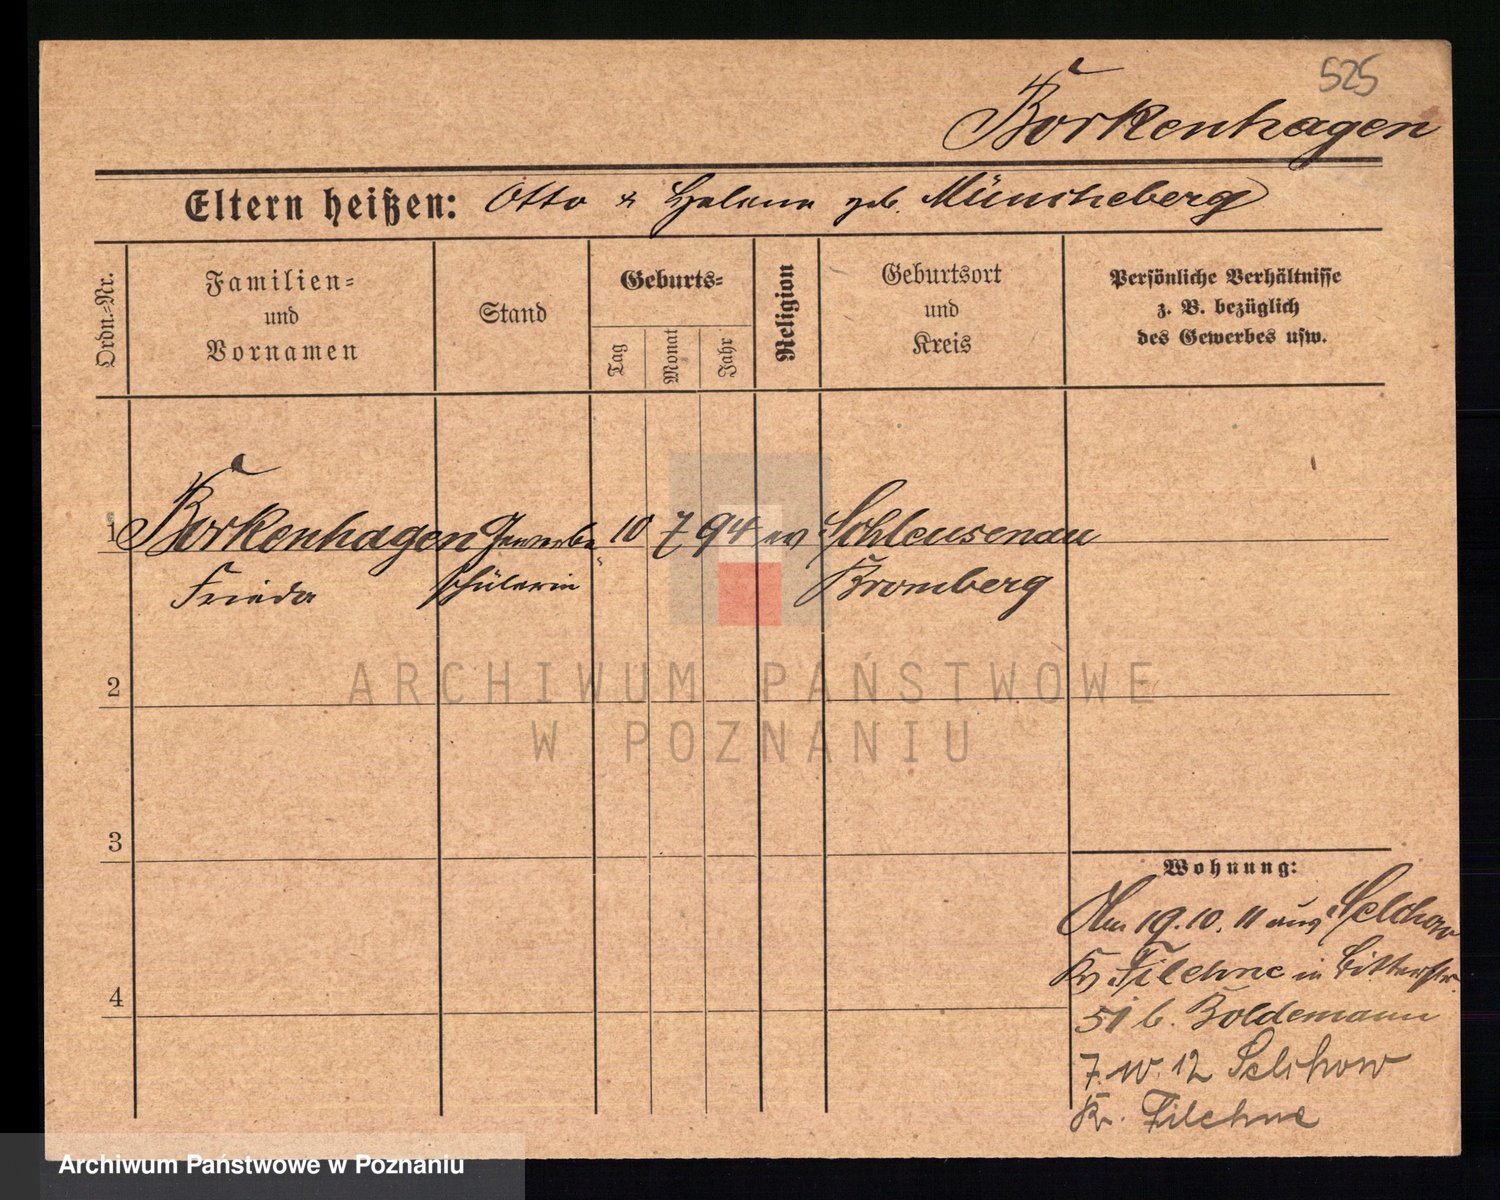 525
Borkenhagen
Eltern heißen: Otto & Helene geb. Müncheberg
Ordn.-Nr.
Familien-
und
Vornamen
Stand
Geburts-
Tag
Monat
Jahr
Religion
Geburtsort
und
Kreis
Persönliche Verhältnisse
z. B. bezüglich
des Gewerbes usw.
1 Borkenhagen Gewerbe 10 7 94 ev Schleusenau
Frieda schülerin Bromberg
2
ARCHIWUM PAŃSTWOWE
W POZNANIU
3
Wohnung:
Am 19.10.11 aus Selchow
Kr Filehne in Ritterstr.
4
51 b. Boldemann
7. 10. 12 Selchow
Kr. Filehne
Archiwum Państwowe w Poznaniu